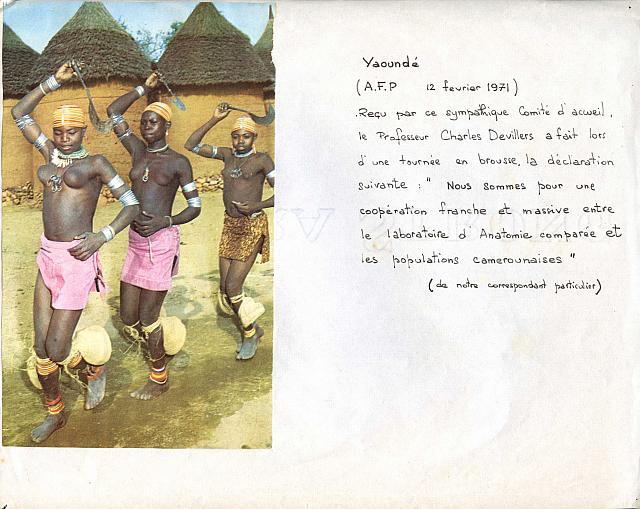 Yaoundé
(A.F.P 12 fevrier 1971)
Reçu par ce sympathique Comité d'accueil,
le Professeur Charles Devillers a fait lors
d'une tournée en brousse, la déclaration
suivante : " Nous sommes pour une
coopération franche et massive entre
le laboratoire d'Anatomie comparée et
les populations camerounaises "
(de notre correspondant particulier)